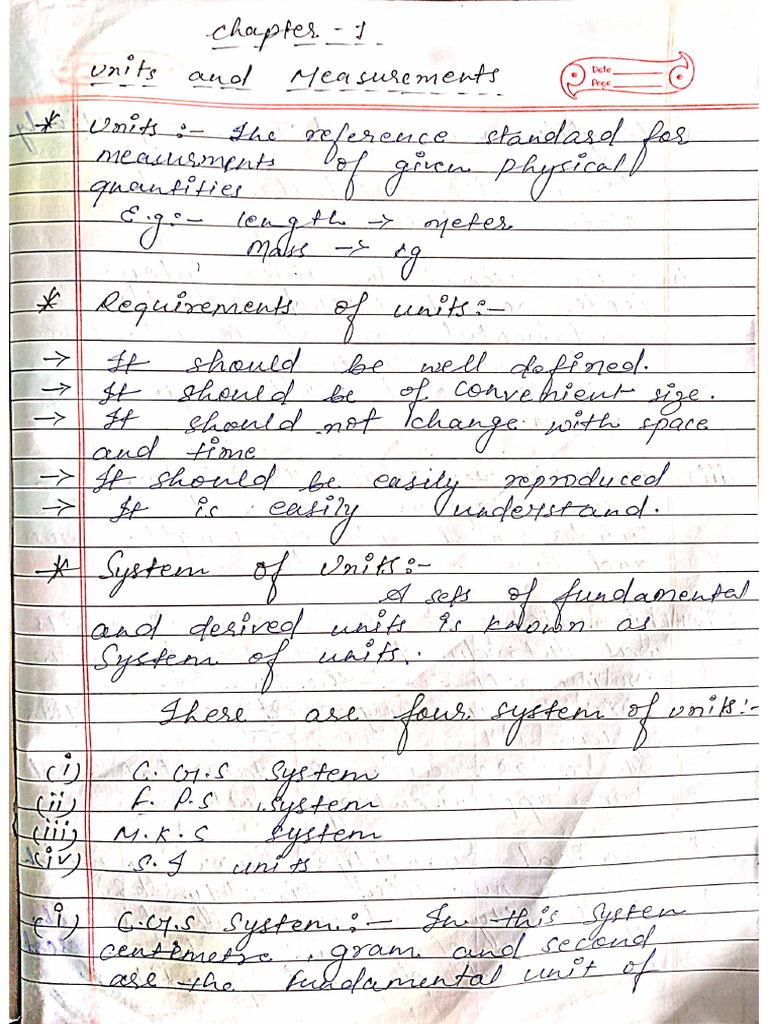 Chapter - 1
Units and Measurements
Date
Page
* Units :- The reference standard for
measurments of given physical
quantities
E.g:- length -> meter
Mass -> kg
* Requirements of units:-
-> It should be well defined.
-> It should be of convenient size.
-> It should not change with space
and time
-> It should be easily reproduced
-> It is easily understand.
* System of Units:-
A sets of fundamental
and desired units is known as
System of units.
There are four system of units:-
(i) C.G.S System
(ii) F.P.S system
(iii) M.K.S system
(iv) S.I units
(i) C.G.S System:- In this System
centimetre, gram and second
are the fundamental unit of